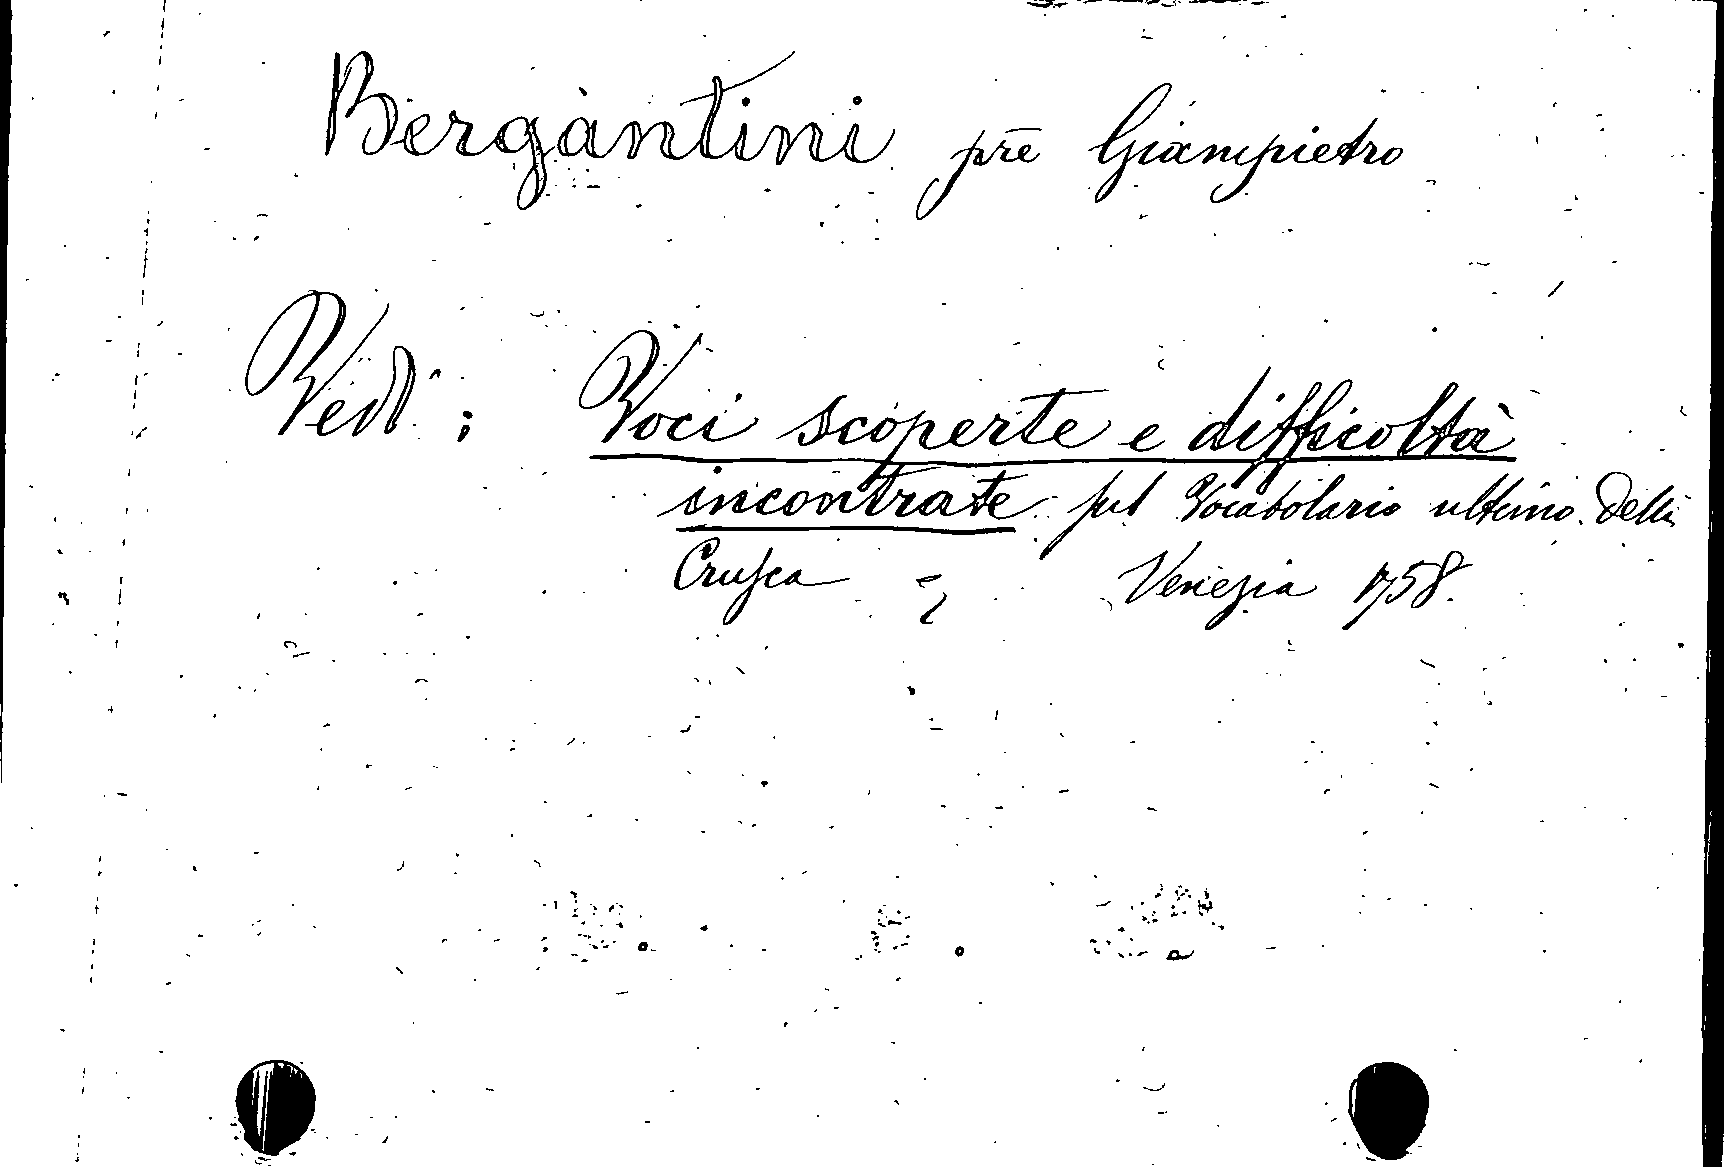 Bergantini prē Giampietro
Vedi: Voci scoperte e difficoltà
incontrate sul Vocabolario ultimo della
Crusca Venezia 1758.